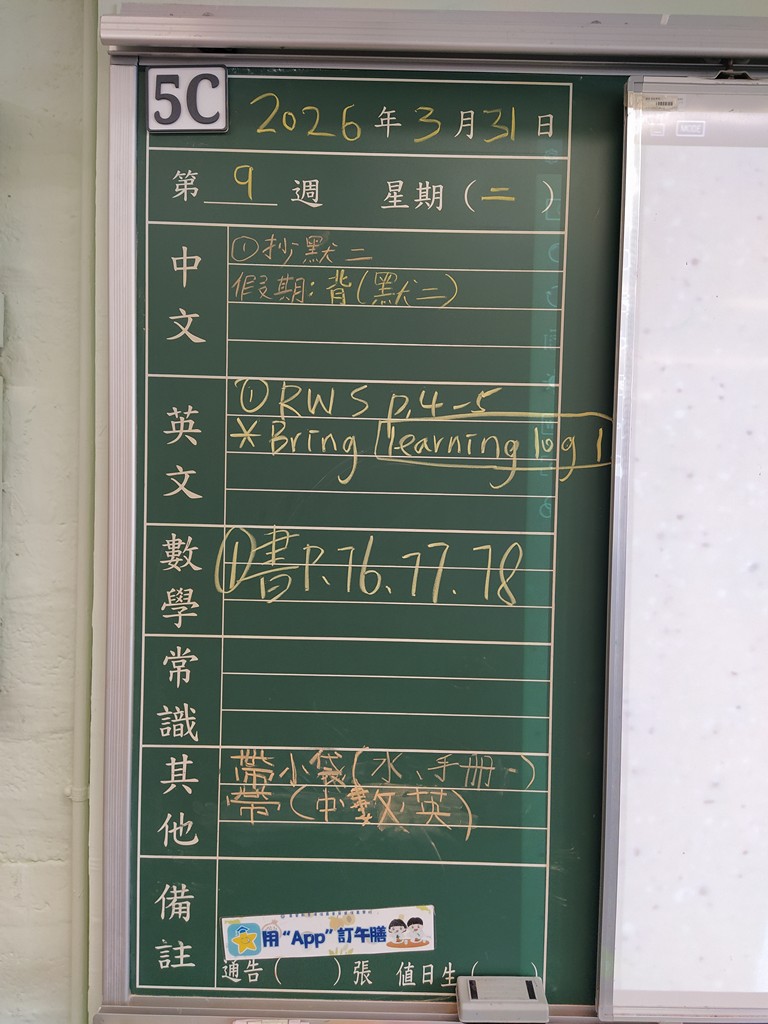 5C
2026年3月31日
第 9 週 星期(二)
中文
①抄默二
假期:背(默二)
英文
①RWS p.4-5
*Bring learning log 1
數學
①書P.76、77、78
常識
其他
帶小袋(水、手冊、)
帶(中數英)
備註
用“App”訂午膳
通告( )張 值日生( )
MODE